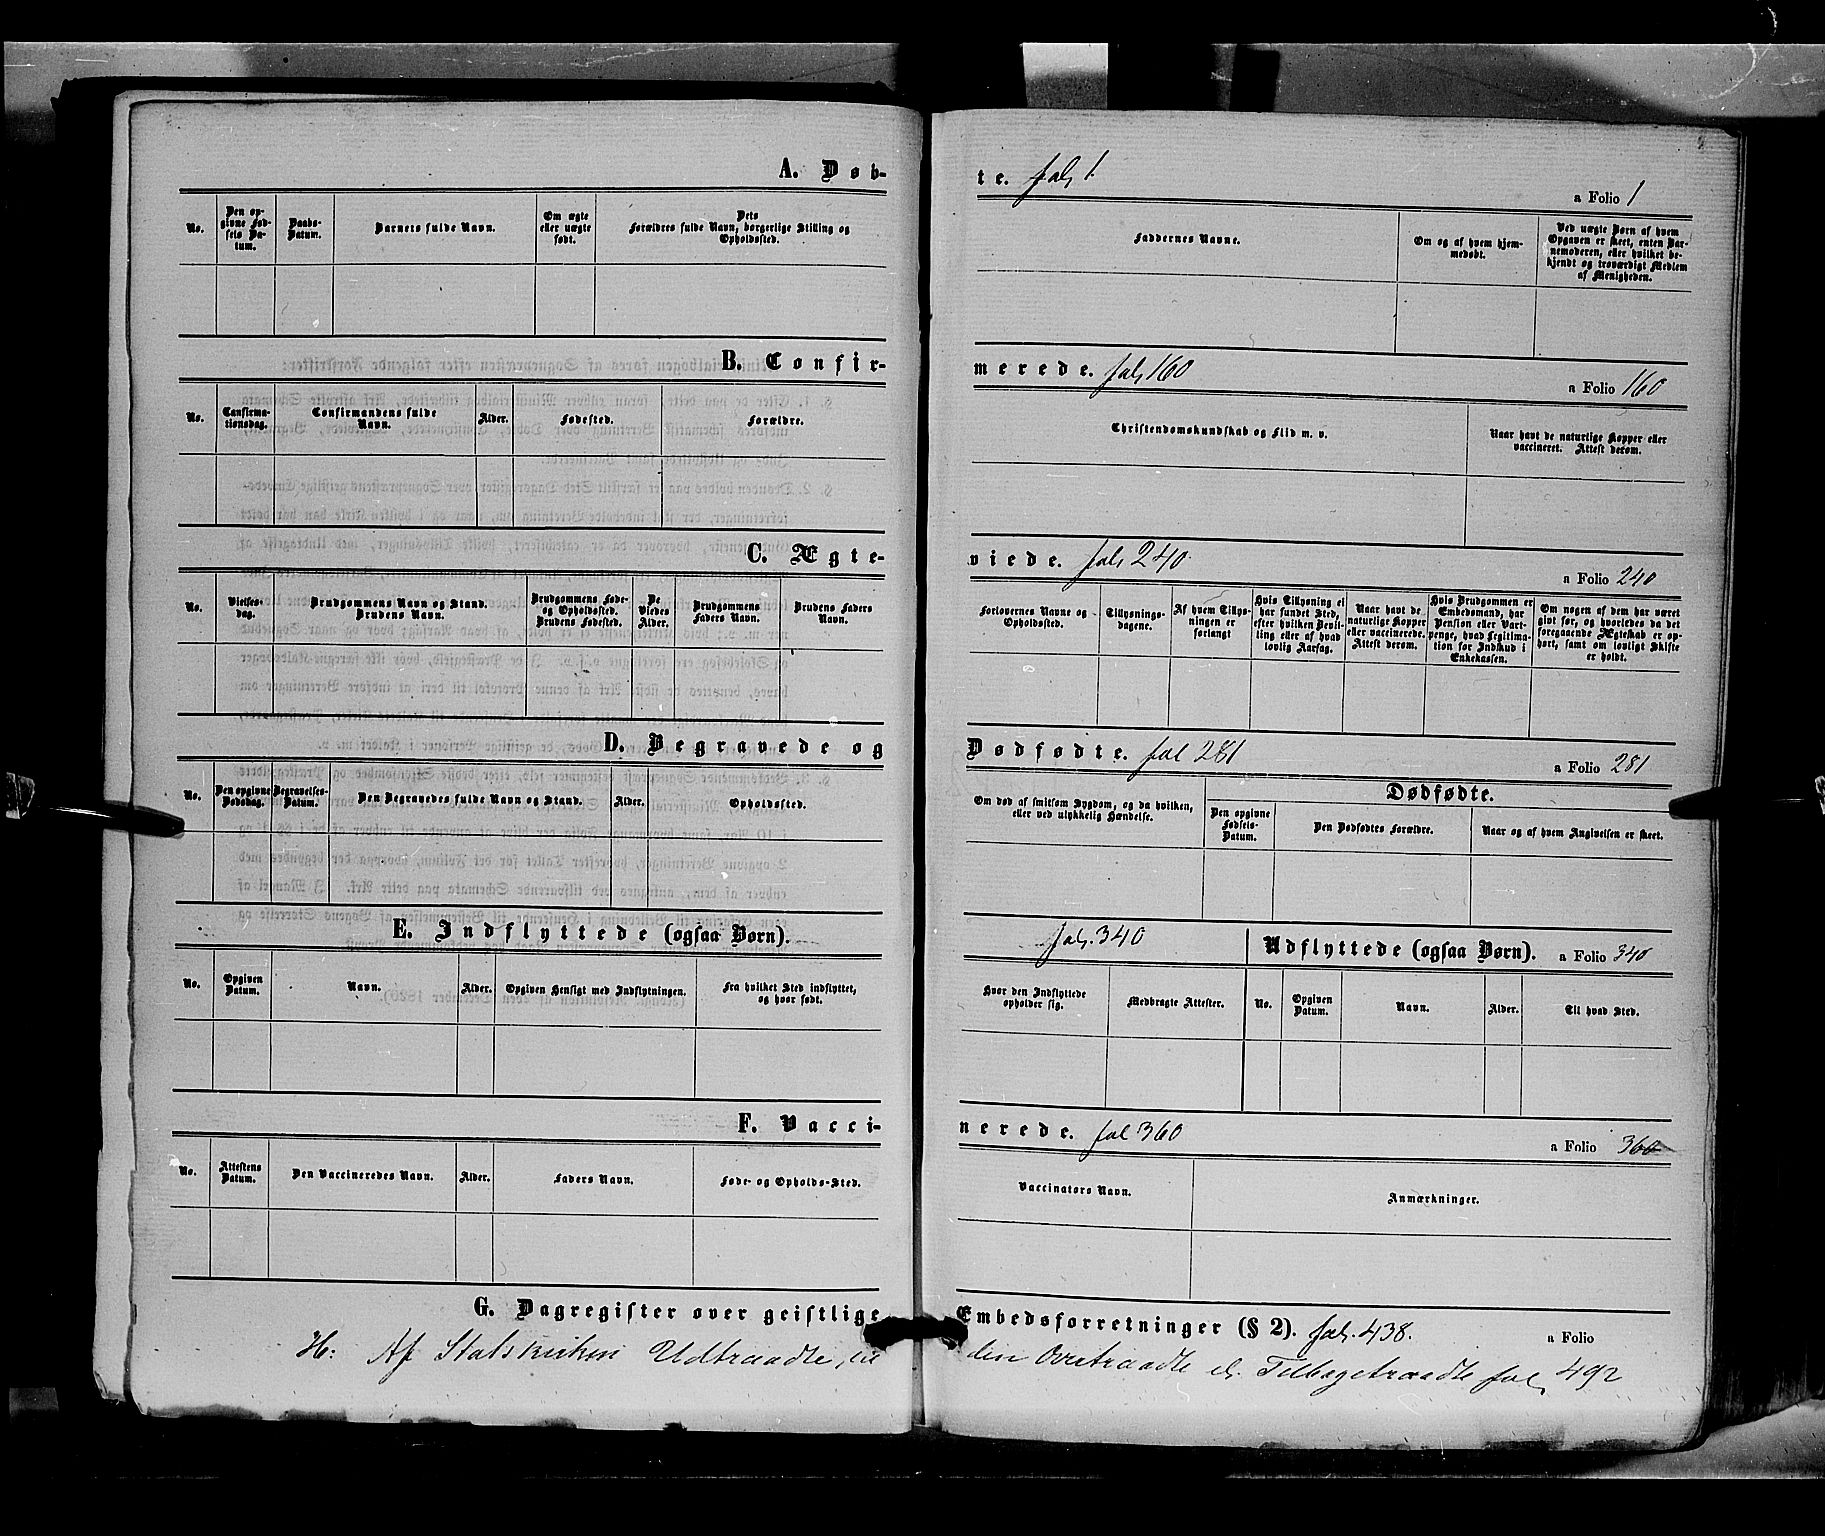 A. Døb-
te. fol. 1.
a Folio 1
No.
Den op-
givne Fød-
sels Da-
tum.
Daabs-
Datum.
Barnets fulde Navn.
Om ægte
eller uægte
født.
Dets
Forældres fulde Navn, borgerlige Stilling og
Opholdssted.
Faddernes Navne.
Om og af hvem hjem-
medøbt.
Ved uægte Børn af hvem
Opgaven er skeet, enten Bar-
nemoderen, eller hvilket be-
kjendt og troværdigt Medlem
af Menigheden.
B. Confir-
merede. fol. 160
a Folio 160
No.
Confirma-
tionsdag.
Confirmandens fulde
Navn.
Alder.
Fødested.
Forældre.
Christendomskundskab og Flid m. v.
Naar havt de naturlige Kopper eller
vaccineret. Attest derom.
C. Ægte-
viede. fol. 240.
a Folio 240
No.
Vielses-
dag.
Brudgommens Navn og Stand.
Brudens Navn.
Brudgommens Føde-
og Opholdssted.
Brudens Fødested.
De
Viedes
Alder.
Brudgommens
Faders Navn.
Brudens Faders
Navn.
Forlovernes Navne og
Opholdssted.
Tillysnings-
dagene.
Af hvem Tillys-
ningen er
forlangt
Hvis Tillysning ei
har fundet Sted,
efter hvilken Bevil-
ling eller af hvad
lovlig Aarsag.
Naar havt de
naturlige Kopper
eller vaccinerede.
Attest derom.
Hvis Brudgommen er
Embedsmand, har
Pension eller Vart-
penge, hvad Legitima-
tion for Indskud i
Enkekassen.
Om nogen af dem har været
gift før, og hvorledes da det
foregaaende Ægteskab er op-
hørt, samt om lovligt Skifte
er holdt.
D. Begravede og
Dødfødte. fol 281
a Folio 281
No.
Den opgivne
Dødsdag.
Begravelses-
Datum.
Den Begravedes fulde Navn og Stand.
Alder.
Opholdssted.
Om død af smitsom Sygdom, og da hvilken,
eller ved ulykkelig Hændelse.
Dødfødte.
Den opgivne
Fødsels-
Datum.
Den Dødfødtes Forældre.
Naar og af hvem Angivelsen er skeet.
E. Indflyttede (ogsaa Børn).
fol. 340
Udflyttede (ogsaa Børn).
a Folio 340
No.
Opgiven
Datum.
Navn.
Alder.
Opgiven Hensigt med Indflytningen.
Fra hvilket Sted indflyttet,
og hvor født.
Hvor den Indflyttede
opholder sig.
Medbragte Attester.
No.
Opgiven
Datum.
Navn.
Alder.
Til hvad Sted.
F. Vacci-
nerede. fol 360
a Folio 360
No.
Attestens
Datum.
Den Vaccineredes Navn.
Alder.
Faders Navn.
Føde- og Opholds-Sted.
Vaccinators Navn.
Anmærkninger.
G. Dagregister over geistlige
Embedsforretninger (§ 2). fol. 438.
a Folio
H: Af Statskirken Udtraadte,
Overtraadte el. Tilbagetraadte fol. 492